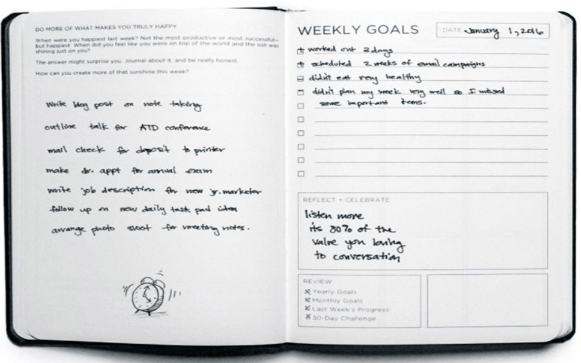 DO MORE OF WHAT MAKES YOU TRULY HAPPY
When were you happiest last week? Not the most productive or most successful–
but happiest. When did you feel like you were on top of the world and the sun was
shining just on you?
The answer might surprise you. Journal about it, and be really honest.
How can you create more of that sunshine this week?
write blog post on note taking
outline talk for ATD conference
mail check for deposit to printer
make dr. appt for annual exam
write job description for new jr. marketer
follow up on new daily task pad idea
arrange photo shoot for meeting notes.
WEEKLY GOALS
DATE January 1, 2016
+ worked out 3 days
+ scheduled 2 weeks of email campaigns
- didn't eat very healthy
- didn't plan my week very well so I missed
some important items.
REFLECT + CELEBRATE
listen more
its 80% of the
value you bring
to conversation
REVIEW
Yearly Goals
Monthly Goals
Last Week's Progress
30-Day Challenge